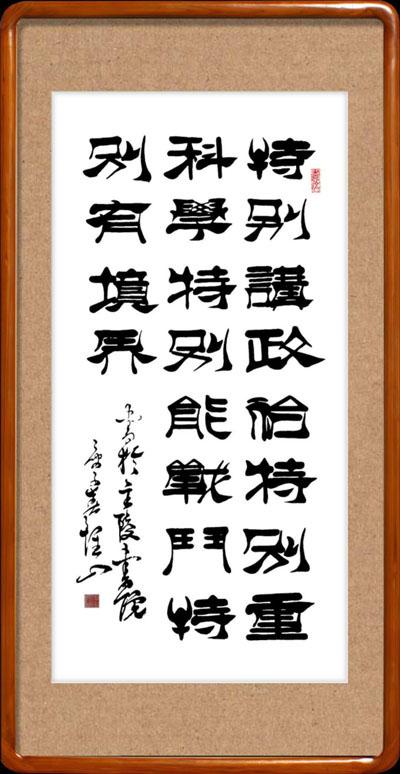 特別講政治特別重
科學特別能戰鬥特
別有境界
於陵書院
山